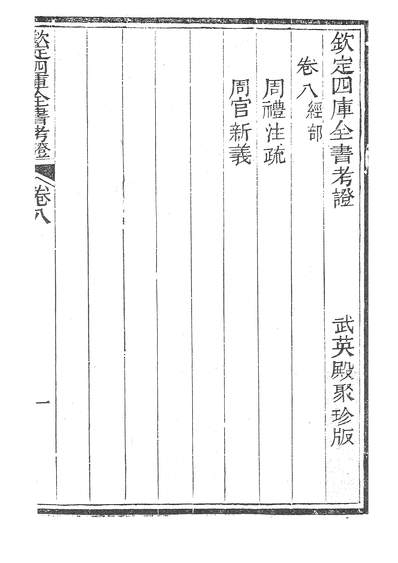 欽定四庫全書考證　武英殿聚珍版
卷八經部
周禮注疏
周官新義
欽定四庫全書考證
卷八
一